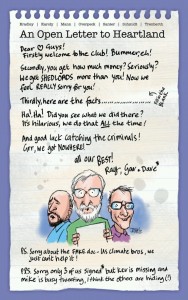 Bradley | Hardy | Mann | Overpeck | Santer | Schmidt | Trenberth
An Open Letter to Heartland
Dear Guys!
Firstly welcome to the club! Bummer, eh!
Secondly, you get how much money? Seriously?
We get SHEDLOADS more than you! Now we
feel REALLY sorry for you!
Thirdly, here are the facts......................
Ha! Ha! Did you see what we did there?
It's hilarious, we do that ALL the time!
And good luck catching the criminals!
Grr, we got NOWHERE!
all our BEST!
Ray, Gav & Dave*
P.S. Sorry about the FAKE doc - Us climate bros, we
just can't help it!
PPS. Sorry only 3 of us signed* but Kev is missing and
mike is busy tweeting, i think the others are hiding(!)